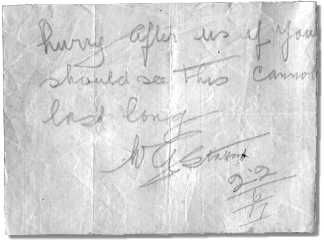 hurry after us if you
should see This cannot
last long
W G
2-2